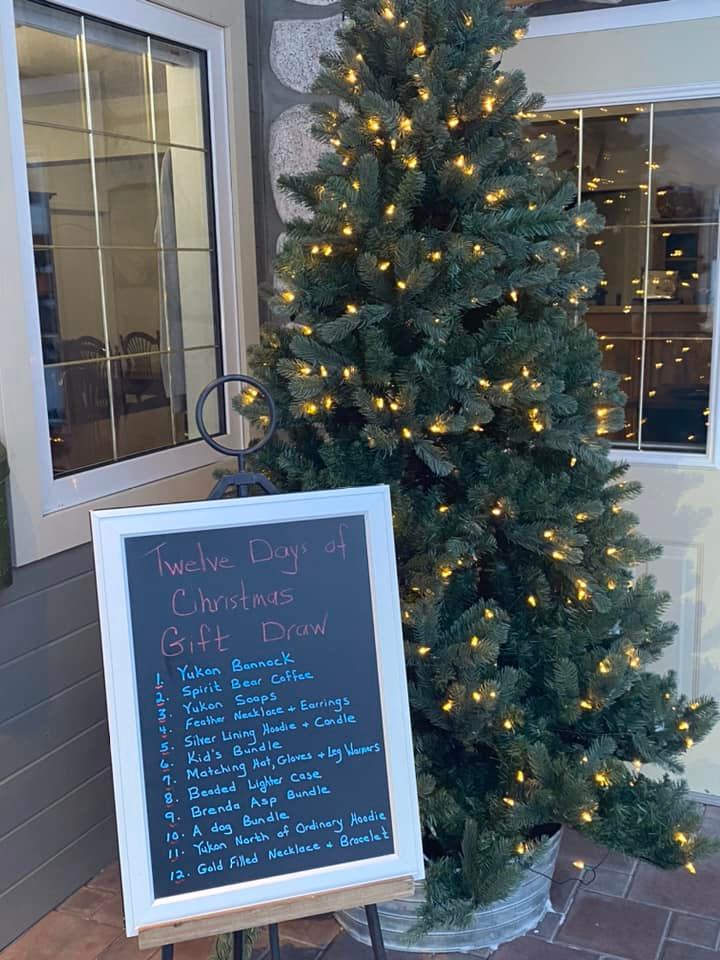 Twelve Days of
Christmas
Gift Draw
1. Yukon Bannock
2. Spirit Bear Coffee
3. Yukon Soaps
4. Feather Necklace + Earrings
5. Silver Lining Hoodie + Candle
6. Kid's Bundle
7. Matching Hat, Gloves + Leg Warmers
8. Beaded Lighter Case
9. Brenda Asp Bundle
10. A dog Bundle
11. Yukon North of Ordinary Hoodie
12. Gold Filled Necklace + Bracelet